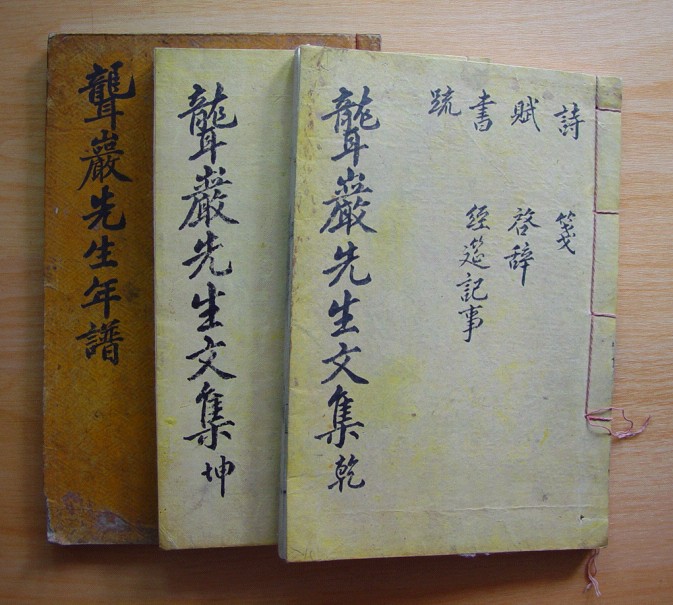 詩 箋
賦 啓辞
書 經筵記事
疏
聾巖先生文集 乾
聾巖先生文集 坤
聾巖先生年譜